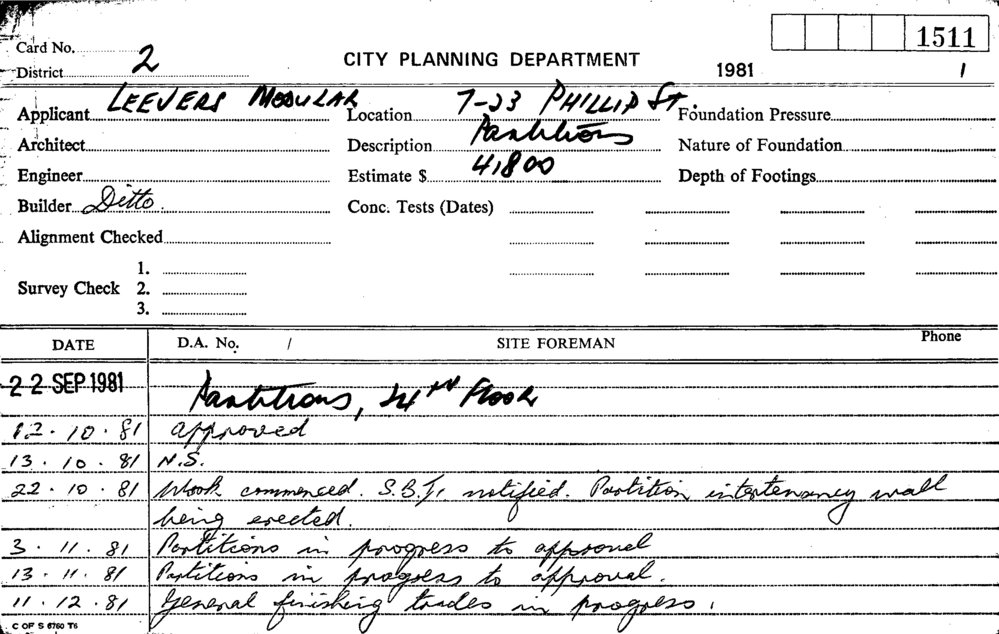 1511
Card No. 2
CITY PLANNING DEPARTMENT
District
1981 /
Applicant LEEVERS MODULAR
Location 7-23 PHILLIP St.
Foundation Pressure
Architect
Description Partitions
Nature of Foundation
Engineer
Estimate $ 41800
Depth of Footings
Builder Ditto.
Conc. Tests (Dates)
Alignment Checked
Survey Check
1.
2.
3.
DATE D.A. No. / SITE FOREMAN Phone
22 SEP 1981 Partitions, 24TH Floor
12.10.81 approved
13.10.81 N.S.
22.10.81 Work commenced. notified. Partition intertenancy wall
being erected.
3.11.81 Partitions in progress to approval
13.11.81 Partitions in progress to approval.
11.12.81 General finishing trades in progress.
C OF S 6760 T6